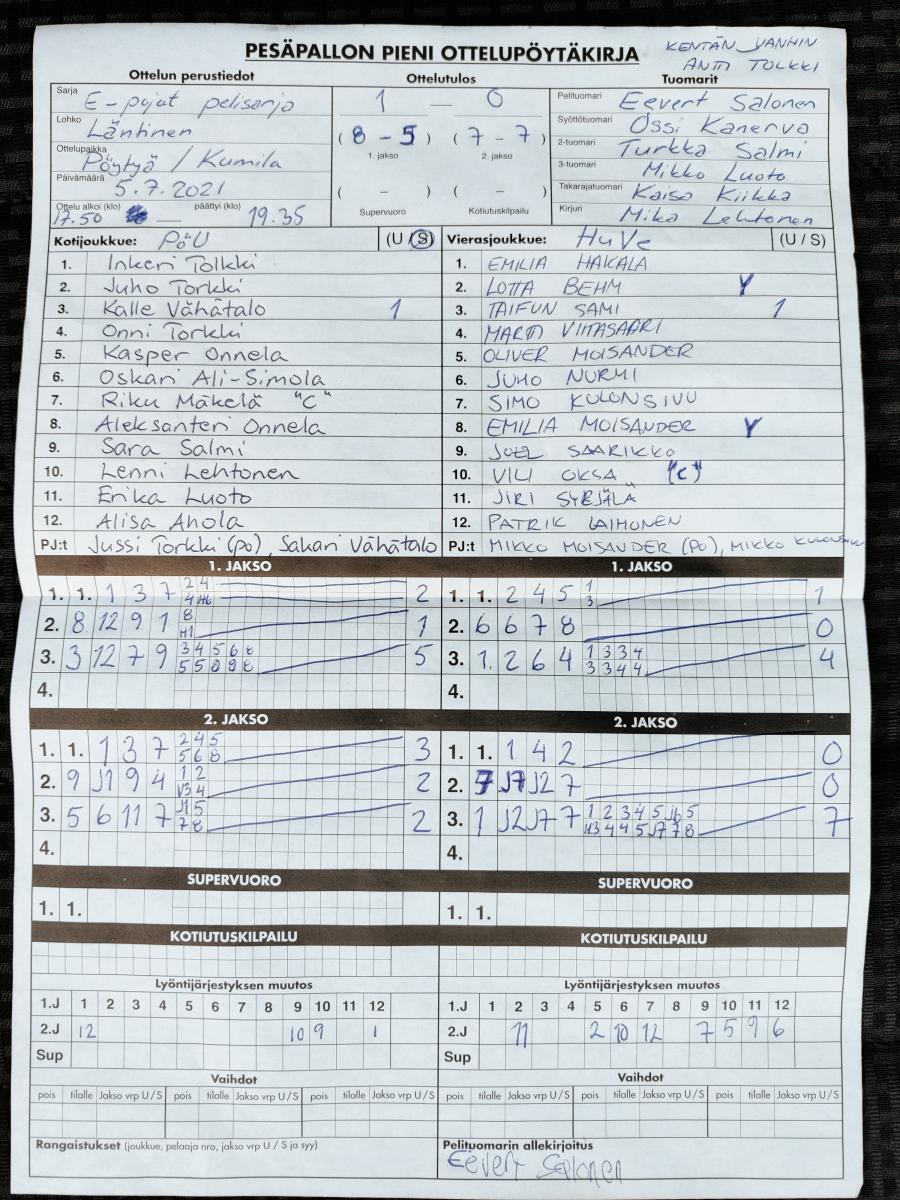 PESÄPALLON PIENI OTTELUPÖYTÄKIRJA
KENTÄN VANHIN
ANTTI TOLKKI
Ottelun perustiedot
Sarja E-pojat pelisarja
Lohko Läntinen
Ottelupaikka Pöytyä / Kumila
Päivämäärä 5.7.2021
Ottelu alkoi (klo) 17.50 — päättyi (klo) 19.35
Ottelutulos
1 — 0
( 8 - 5 ) ( 7 - 7 )
1. jakso 2. jakso
( - ) ( - )
Supervuoro Kotiutuskilpailu
Tuomarit
Pelituomari Eevert Salonen
Syöttötuomari Ossi Kanerva
2-tuomari Turkka Salmi
3-tuomari Mikko Luoto
Takarajatuomari Kaisa Kiikka
Kirjuri Mika Lehtonen
Kotijoukkue: PöU (U / S)
1. Inkeri Tolkki
2. Juho Torkki
3. Kalle Vähätalo 1
4. Onni Torkki
5. Kasper Onnela
6. Oskari Ali-Simola
7. Riku Mäkelä "C"
8. Aleksanteri Onnela
9. Sara Salmi
10. Lenni Lehtonen
11. Erika Luoto
12. Alisa Ahola
PJ:t Jussi Torkki (po), Sakari Vähätalo
Vierasjoukkue: HuVe (U / S)
1. EMILIA HAKALA
2. LOTTA BEHM Y
3. TAIFUN SAMI 1
4. MARTTI VIITASAARI
5. OLIVER MOISANDER
6. JUHO NURMI
7. SIMO KULONSIVU
8. EMILIA MOISANDER Y
9. JOEL SAARIKKO
10. VILI OKSA "(C)"
11. JIRI SYRJÄLÄ
12. PATRIK LAIHONEN
PJ:t MIKKO MOISANDER (PO), MIKKO KULONSIVU
1. JAKSO
1. 1. 1 3 7 2 4 2
4 H6
2. 8 12 9 1 8 1
H1
3. 3 12 7 9 3 4 5 6 8 5
4.
1. JAKSO
1. 1. 2 4 5 1 1
3
2. 6 6 7 8 0
3. 1. 2 6 4 1 3 3 4 4
3 3 4 4
4.
2. JAKSO
1. 1. 1 3 7 2 4 5 3
5 6 8
2. 9 J1 9 4 1 2 2
V3 4
3. 5 6 11 7 J1 5 2
7 8
4.
2. JAKSO
1. 1. 1 4 2 0
2. 7 J7 J2 7 0
3. 1 J2 J7 7 1 2 3 4 5 J6 5 7
H3 4 4 5 J7 7 8
4.
SUPERVUORO
1. 1.
SUPERVUORO
1. 1.
KOTIUTUSKILPAILU
KOTIUTUSKILPAILU
Lyöntijärjestyksen muutos
1.J 1 2 3 4 5 6 7 8 9 10 11 12
2.J 12 10 9 1
Sup
Lyöntijärjestyksen muutos
1.J 1 2 3 4 5 6 7 8 9 10 11 12
2.J 11 2 10 12 7 5 9 6
Sup
Vaihdot
pois tilalle Jakso vrp U / S pois tilalle Jakso vrp U / S pois tilalle Jakso vrp U / S
Vaihdot
pois tilalle Jakso vrp U / S pois tilalle Jakso vrp U / S pois tilalle Jakso vrp U / S
Rangaistukset (joukkue, pelaaja nro, jakso vrp U / S ja syy)
Pelituomarin allekirjoitus
Eevert Salonen